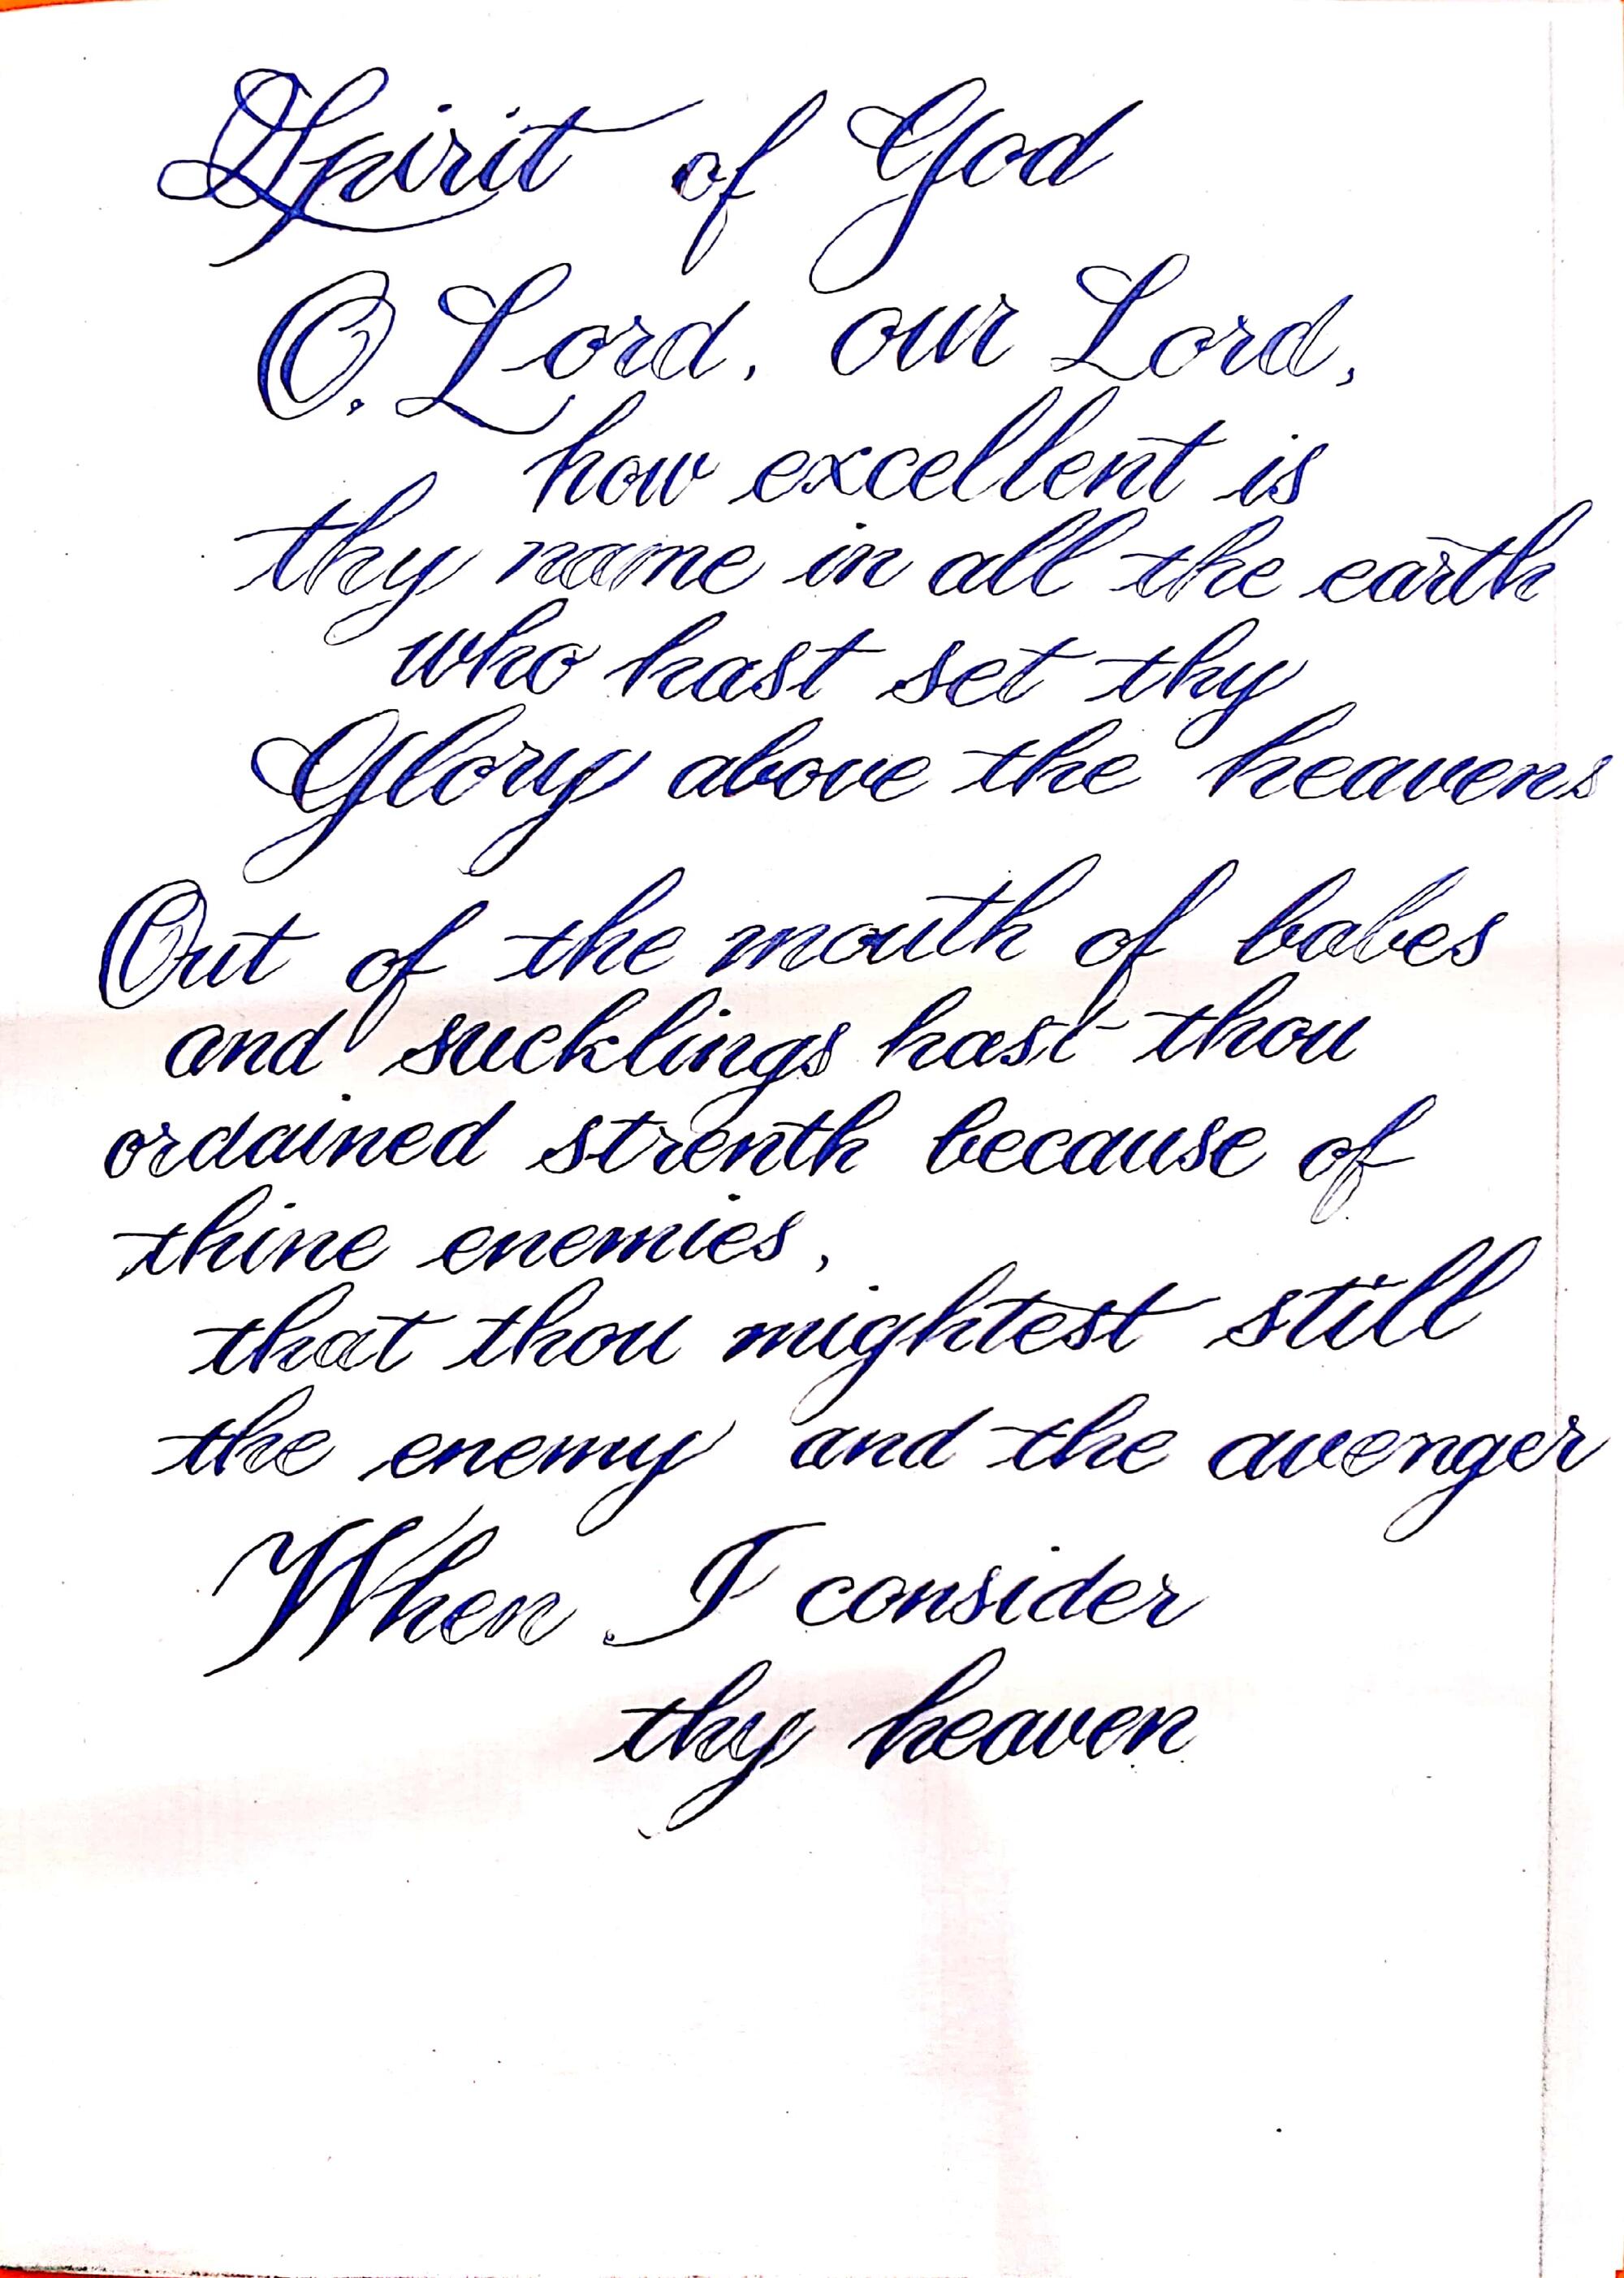 Spirit of God
O. Lord, our Lord,
how excellent is
thy name in all the earth
who hast set thy
Glory above the heavens
Out of the mouth of babes
and sucklings hast thou
ordained strenth because of
thine enemies,
that thou mightest still
the enemy and the avenger
When I consider
thy heaven